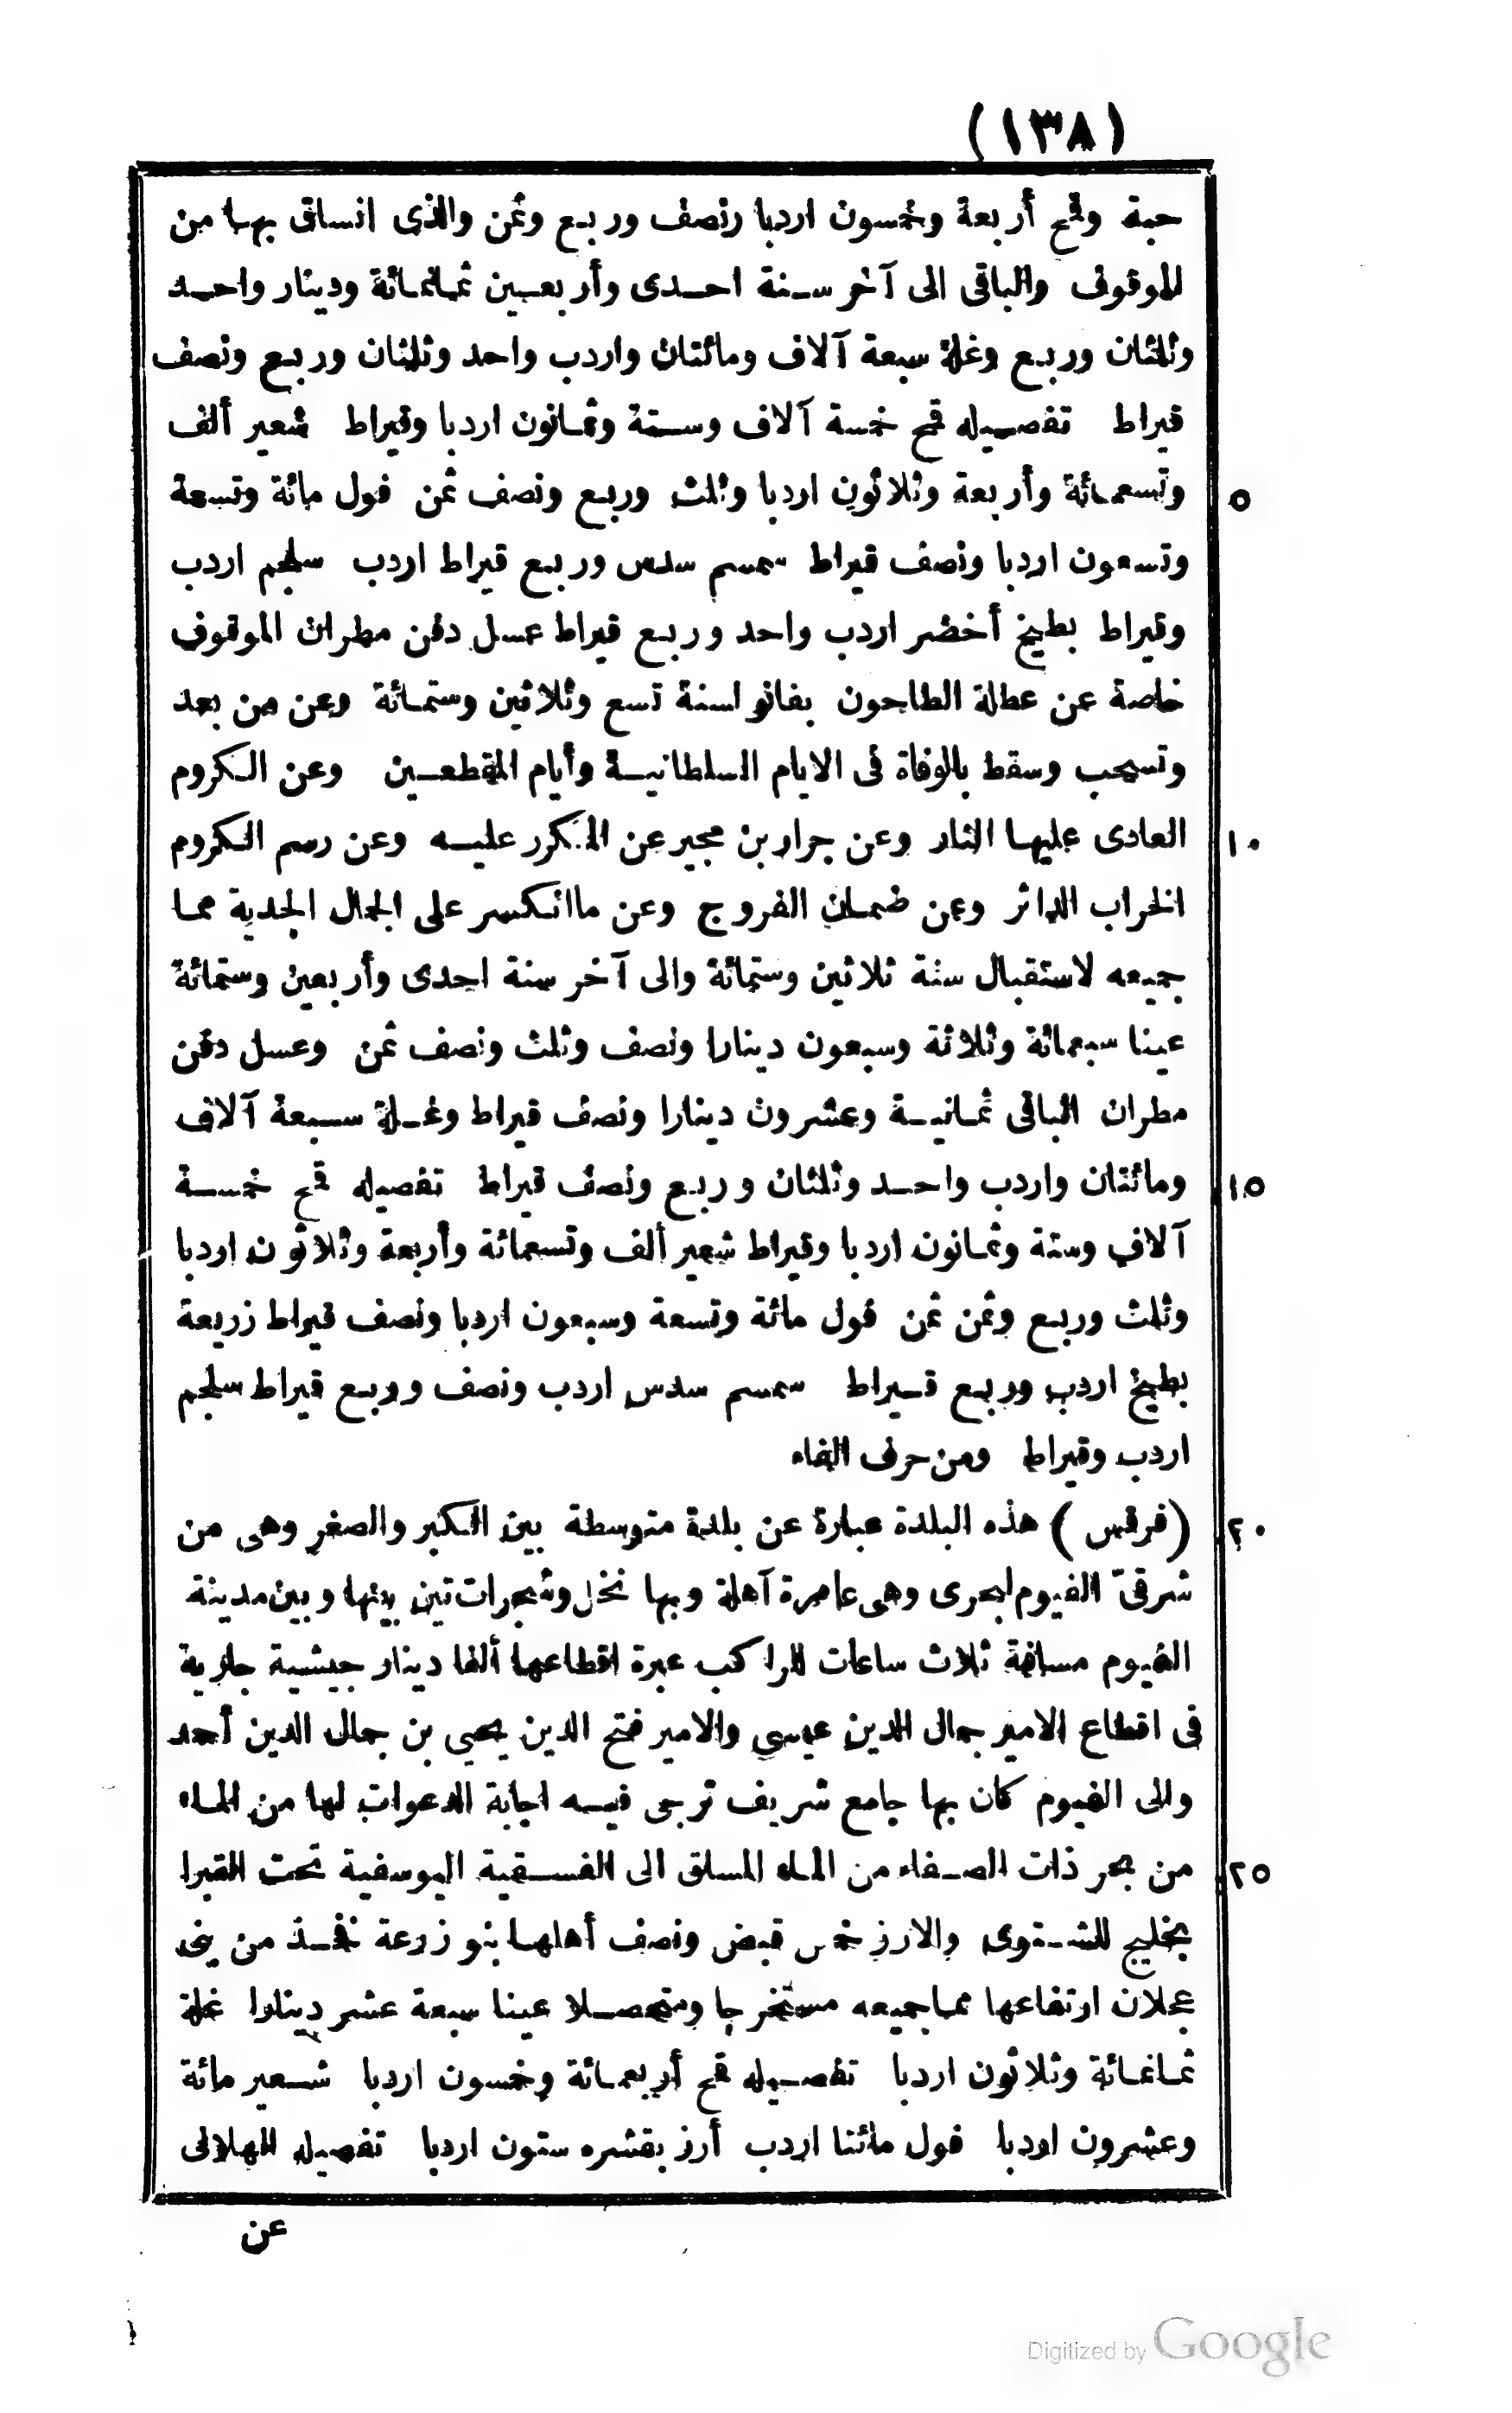 (١٣٨)
حبة وقمح أربعة وخمسون اردبا ونصف وربع وثمن والذى انساق بها من
الموقوف والباقى الى آخر سنة احدى وأربعين ثمانمائة ودينار واحد
وثلثان وربع وغلة سبعة آلاف ومائتان واردب واحد وثلثان وربع ونصف
قيراط تفصيله قمح خمسة آلاف وستة وثمانون اردبا وقيراط شعير ألف
٥ وتسعمائة وأربعة وثلاثون اردبا وثلث وربع ونصف ثمن فول مائة وتسعة
وتسعون اردبا ونصف قيراط سمسم سدس وربع قيراط اردب سلجم اردب
وقيراط بطيخ أخضر اردب واحد وربع قيراط عسل دفن مطران الموقوف
خاصة عن عطلة الطاحون بفانو لسنة تسع وثلاثين وستمائة وعن من بعد
وتسحب وسقط بالوفاة فى الايام السلطانية وأيام المقطعين وعن الكروم
١٠ العادى عليها النار وعن جرار بن مجير عن المنكرر عليه وعن رسم الكروم
الخراب الداثر وعن ضمان الفروج وعن ماانكسر على الجمال الجدية مما
جميعه لاستقبال سنة ثلاثين وستمائة والى آخر سنة احدى وأربعين وستمائة
عينا سبعمائة وثلاثة وسبعون دينارا ونصف وثلث ونصف ثمن وعسل دفن
مطران الباقى ثمانية وعشرون دينارا ونصف قيراط وغلة سبعة آلاف
١٥ ومائتان واردب واحد وثلثان وربع ونصف قيراط تفصيله قمح خمسة
آلاف وستة وثمانون اردبا وقيراط شعير ألف وتسعمائة وأربعة وثلاثون اردبا
وثلث وربع وثمن ثمن فول مائة وتسعة وسبعون اردبا ونصف قيراط زريعة
بطيخ اردب وربع قيراط سمسم سدس اردب ونصف وربع قيراط سلجم
اردب وقيراط ومن حرف الفاء
٢٠ (فرقس) هذه البلدة عبارة عن بلدة متوسطة بين الكبر والصغر وهى من
شرقىّ الفيوم بحرى وهى عامرة آهلة وبها نخل وشجرات تين بينها وبين مدينة
الفيوم مسافة ثلاث ساعات للراكب عبرة اقطاعها ألفا دينار جيشية جارية
فى اقطاع الامير جمال الدين عيسى والامير فتح الدين يحيى بن جمال الدين أحمد
والى الفيوم كان بها جامع شريف ترجى فيه اجابة الدعوات لها من الماء
٢٥ من بحر ذات الصفاء من الماء المساق الى الفسقية اليوسفية تحت القبرا
بخليج للشتوى والارز خمس قبض ونصف أهلها بنو زرعة فخذ من بنى
عجلان ارتفاعها مما جميعه مستخرجا ومتحصلا عينا سبعة عشر دينارا غلة
ثمانمائة وثلاثون اردبا تفصيله قمح أربعمائة وخمسون اردبا شعير مائة
وعشرون اردبا فول مائتا اردب أرز بقشره ستون اردبا تفصيله الهلالى
عن
Digitized by Google